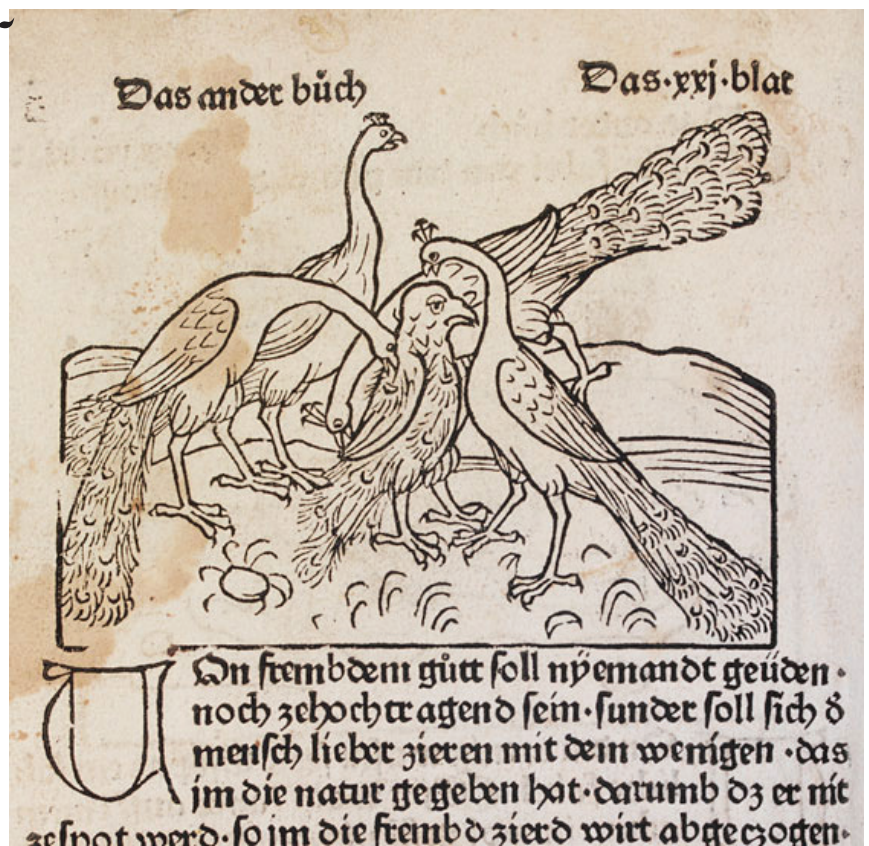 Das ander bůch
Das·xxj·blat
VOn frembdem gůtt soll nÿemandt geüden·
noch zehochtragend sein·sunder soll sich d̕
mensch lieber zieren mit dem wenigen·das
jm die natur gegeben hat·darumb dz er nit
zespot werd·so jm die frembd zierd wirt abgeczogen·